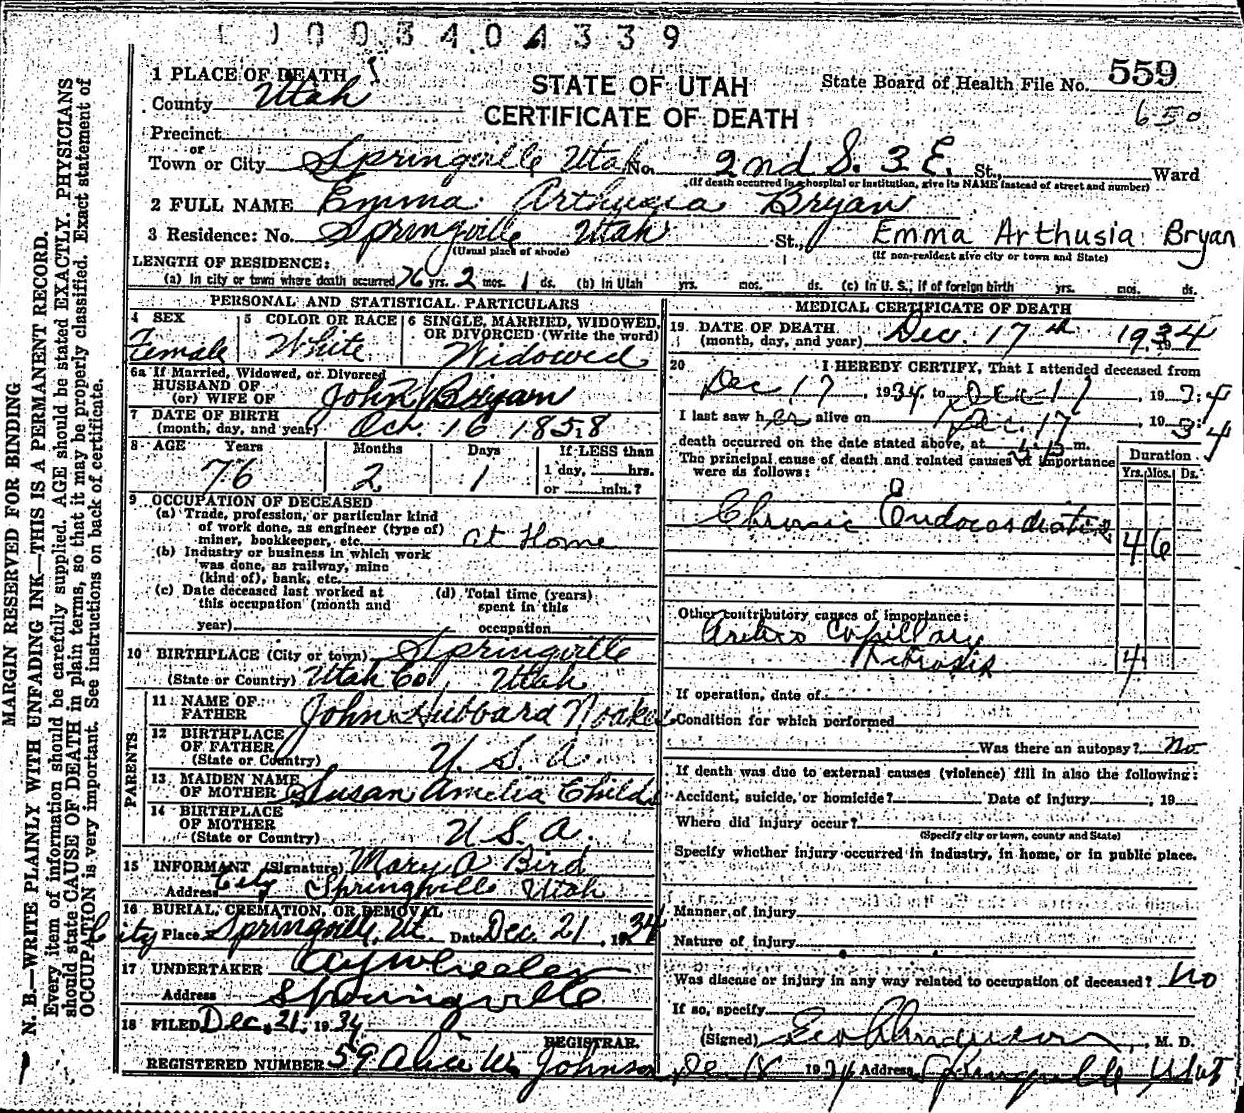 0003404339
1 PLACE OF DEATH
STATE OF UTAH
CERTIFICATE OF DEATH
State Board of Health File No. 559
650
County Utah
Precinct
or
Town or City Springville Utah No. 2nd S. 3 E. St., Ward
(If death occurred in a hospital or institution, give its NAME instead of street and number)
2 FULL NAME Emma Arthusia Bryan
3 Residence: No. Springville Utah St., Emma Arthusia Bryan
(Usual place of abode) (If non-resident give city or town and State)
LENGTH OF RESIDENCE:
(a) In city or town where death occurred 76 yrs. 2 mos. 1 ds. (b) In Utah yrs. mos. ds. (c) in U. S., if of foreign birth yrs. mos. ds.
PERSONAL AND STATISTICAL PARTICULARS
4 SEX Female
5 COLOR OR RACE White
6 SINGLE, MARRIED, WIDOWED, OR DIVORCED (Write the word) Widowed
6a If Married, Widowed, or Divorced
HUSBAND OF
(or) WIFE OF John Bryan
7 DATE OF BIRTH
(month, day, and year) Oct. 16 1858
8 AGE Years Months Days If LESS than
76 2 1 1 day, hrs.
or min.?
9 OCCUPATION OF DECEASED
(a) Trade, profession, or particular kind
of work done, as engineer (type of)
miner, bookkeeper, etc. at Home
(b) Industry or business in which work
was done, as railway, mine
(kind of), bank, etc.
(c) Date deceased last worked at
this occupation (month and
year)
(d) Total time (years)
spent in this
occupation
10 BIRTHPLACE (City or town) Springville
(State or Country) Utah Co., Utah
PARENTS
11 NAME OF
FATHER John Hubbard Noakes
12 BIRTHPLACE
OF FATHER
(State or Country) U. S. A
13 MAIDEN NAME
OF MOTHER Susan Amelia Childs
14 BIRTHPLACE
OF MOTHER
(State or Country) U.S.A.
15 INFORMANT (Signature) Mary A Bird
Address City Springville Utah
16 BURIAL, CREMATION, OR REMOVAL
City Place Springville, Ut. Date Dec. 21, 1934
17 UNDERTAKER A Y Wheeler
Address Springville
18 FILED Dec. 21, 1934
REGISTRAR.
REGISTERED NUMBER 59 Alice W. Johnson
MEDICAL CERTIFICATE OF DEATH
19 DATE OF DEATH
(month, day, and year) Dec. 17th 1934
20 I HEREBY CERTIFY, That I attended deceased from
Dec 17, 1934, to Dec 17, 1934
I last saw her alive on Dec. 17 1934
death occurred on the date stated above, at m.
The principal cause of death and related causes of importance
were as follows:
Duration
Yrs. Mos. Ds.
Chronic Endocarditis 4 6
Other contributory causes of importance:
Arterio Capillary
Fibrosis 4
If operation, date of
Condition for which performed
Was there an autopsy? No
If death was due to external causes (violence) fill in also the following:
Accident, suicide, or homicide? Date of injury, 19
Where did injury occur?
(Specify city or town, county and State)
Specify whether injury occurred in industry, in home, or in public place.
Manner of injury
Nature of injury
Was disease or injury in any way related to occupation of deceased? No
If so, specify
(Signed) , M. D.
De 18 1934 Address Springville Utah
MARGIN RESERVED FOR BINDING
N. B.—WRITE PLAINLY WITH UNFADING INK—THIS IS A PERMANENT RECORD.
Every item of information should be carefully supplied. AGE should be stated EXACTLY. PHYSICIANS
should state CAUSE OF DEATH in plain terms, so that it may be properly classified. Exact statement of
OCCUPATION is very important. See instructions on back of certificate.